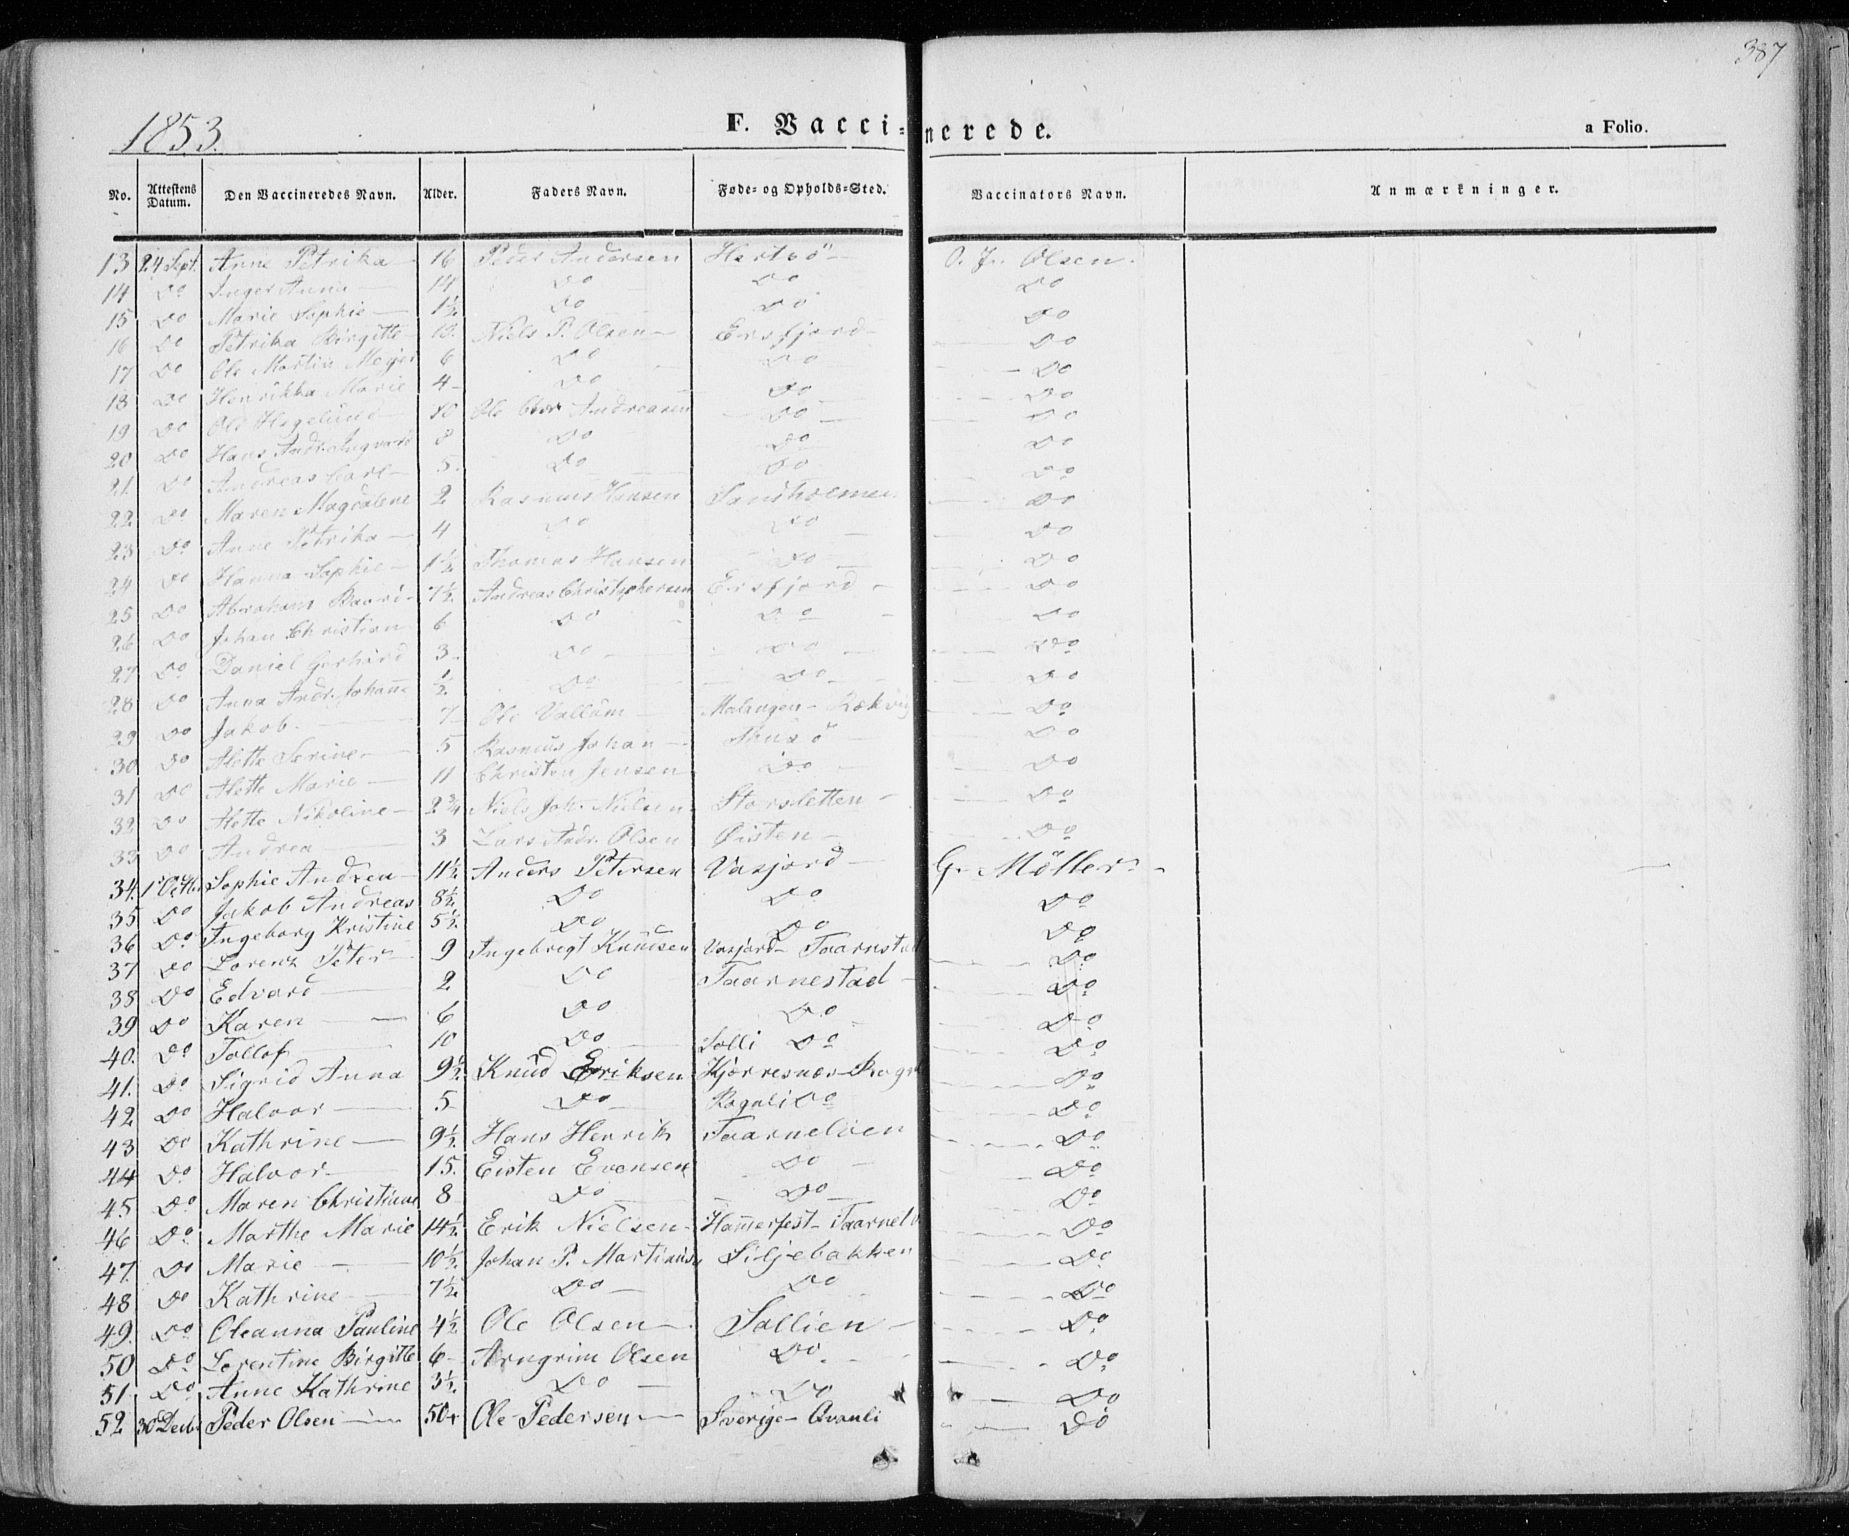 387
1853.
F. Vaccinerede.
a Folio.
No. | Attestens Datum. | Den Vaccineredes Navn. | Alder. | Faders Navn. | Føde- og Opholds-Sted. | Vaccinators Navn. | Anmærkninger.
13 | 24 Sept. | Anne Petrika | 16 | Peder Andersen | | O. J. Olsen.
14 | Do | Inger Anne | 14 | Do | Do | Do
15 | Do | Marie Sophie | 1½ | Do | Do | Do
16 | Do | Petrika Birgitte | 10 | Niels P. Olsen | Ersfjord | Do
17 | Do | Ole Martin | 6 | Do | Do | Do
18 | Do | Henrikka Marie | 4 | Do | Do | Do
19 | Do | Ole Hegelund | 10 | Ole Chr Andreasen | Do | Do
20 | Do | Hans Andr. Ingvard | 8 | Do | Do | Do
21 | Do | Andreas Carl | 5 | Do | Do | Do
22 | Do | Maren Magdalene | 2 | Rasmus Hansen | | Do
23 | Do | Anne Petrika | 4 | Do | Do | Do
24 | Do | Hanna Sophie | 1½ | Thomas Hansen | Do | Do
25 | Do | Abraham | 7½ | Andreas Christophersen | Ersfjord | Do
26 | Do | Johan Christian | 6 | Do | Do | Do
27 | Do | Daniel Gerhard | 3 | Do | Do | Do
28 | Do | Anna Andr. Johanne | ½ | Do | Do | Do
29 | Do | Jakob | 7 | Ole Vallum | Malangen - Rækvig | Do
30 | Do | Alette Serine | 5 | Rasmus Johan | | Do
31 | Do | Alette Marie | 11 | Christen Jensen | Do | Do
32 | Do | Alette Nikoline | 2¾ | Niels Joh. Nielsen | Storsletten | Do
33 | Do | Andrea | 3 | Lars Andr. Olsen | Øisten | Do
34. | 1 Octbr | Sophie Andrea | 11½ | Anders Petersen | Vasjord | G. Möller
35 | Do | Jakob Andreas | 8½ | Do | Do | Do
36 | Do | Ingeborg Kristine | 5½ | Do | Do | Do
37 | Do | Lorenz Peter | 9 | Ingebrigt Knudsen | Vasjord - Taarnestad | Do
38 | Do | Edvard | 2 | Do | Taarnestad | Do
39 | Do | Karen | 6 | Do | Do | Do
40. | Do | Tollof | 10 | Do | Solli Do | Do
41. | Do | Sigrid Anna | 9½ | Knud Eriksen | Kjerresnæs | Do
42 | Do | Halvor | 5 | Do | Rognli Do | Do
43 | Do | Kathrine | 9½ | Hans Henrik | Taarnelven | Do
44 | Do | Halvor | 15. | Eisten Evensen | Do | Do
45 | Do | Maren Christiane | 8 | Do | Do | Do
46 | Do | Marthe Marie | 14½ | Erik Nielsen | Hamerfest - Taarnel | Do
47. | Do | Marie | 10½ | Johan P. Martinus | Siljebakken | Do
48 | Do | Kathrine | 7½ | Do | Do | Do
49. | Do | Oleanna Pauline | 4½ | Ole Olsen | Sollien | Do
50 | Do | Lorentine Birgitte | 6 | Arngrim Olsen | Do | Do
51 | Do | Anne Kathrine | 3½ | Do | Do | Do
52 | 30 Decbr | Peder Olsen | 50 | Ole Pedersen | Sverige - Qvanli | Do